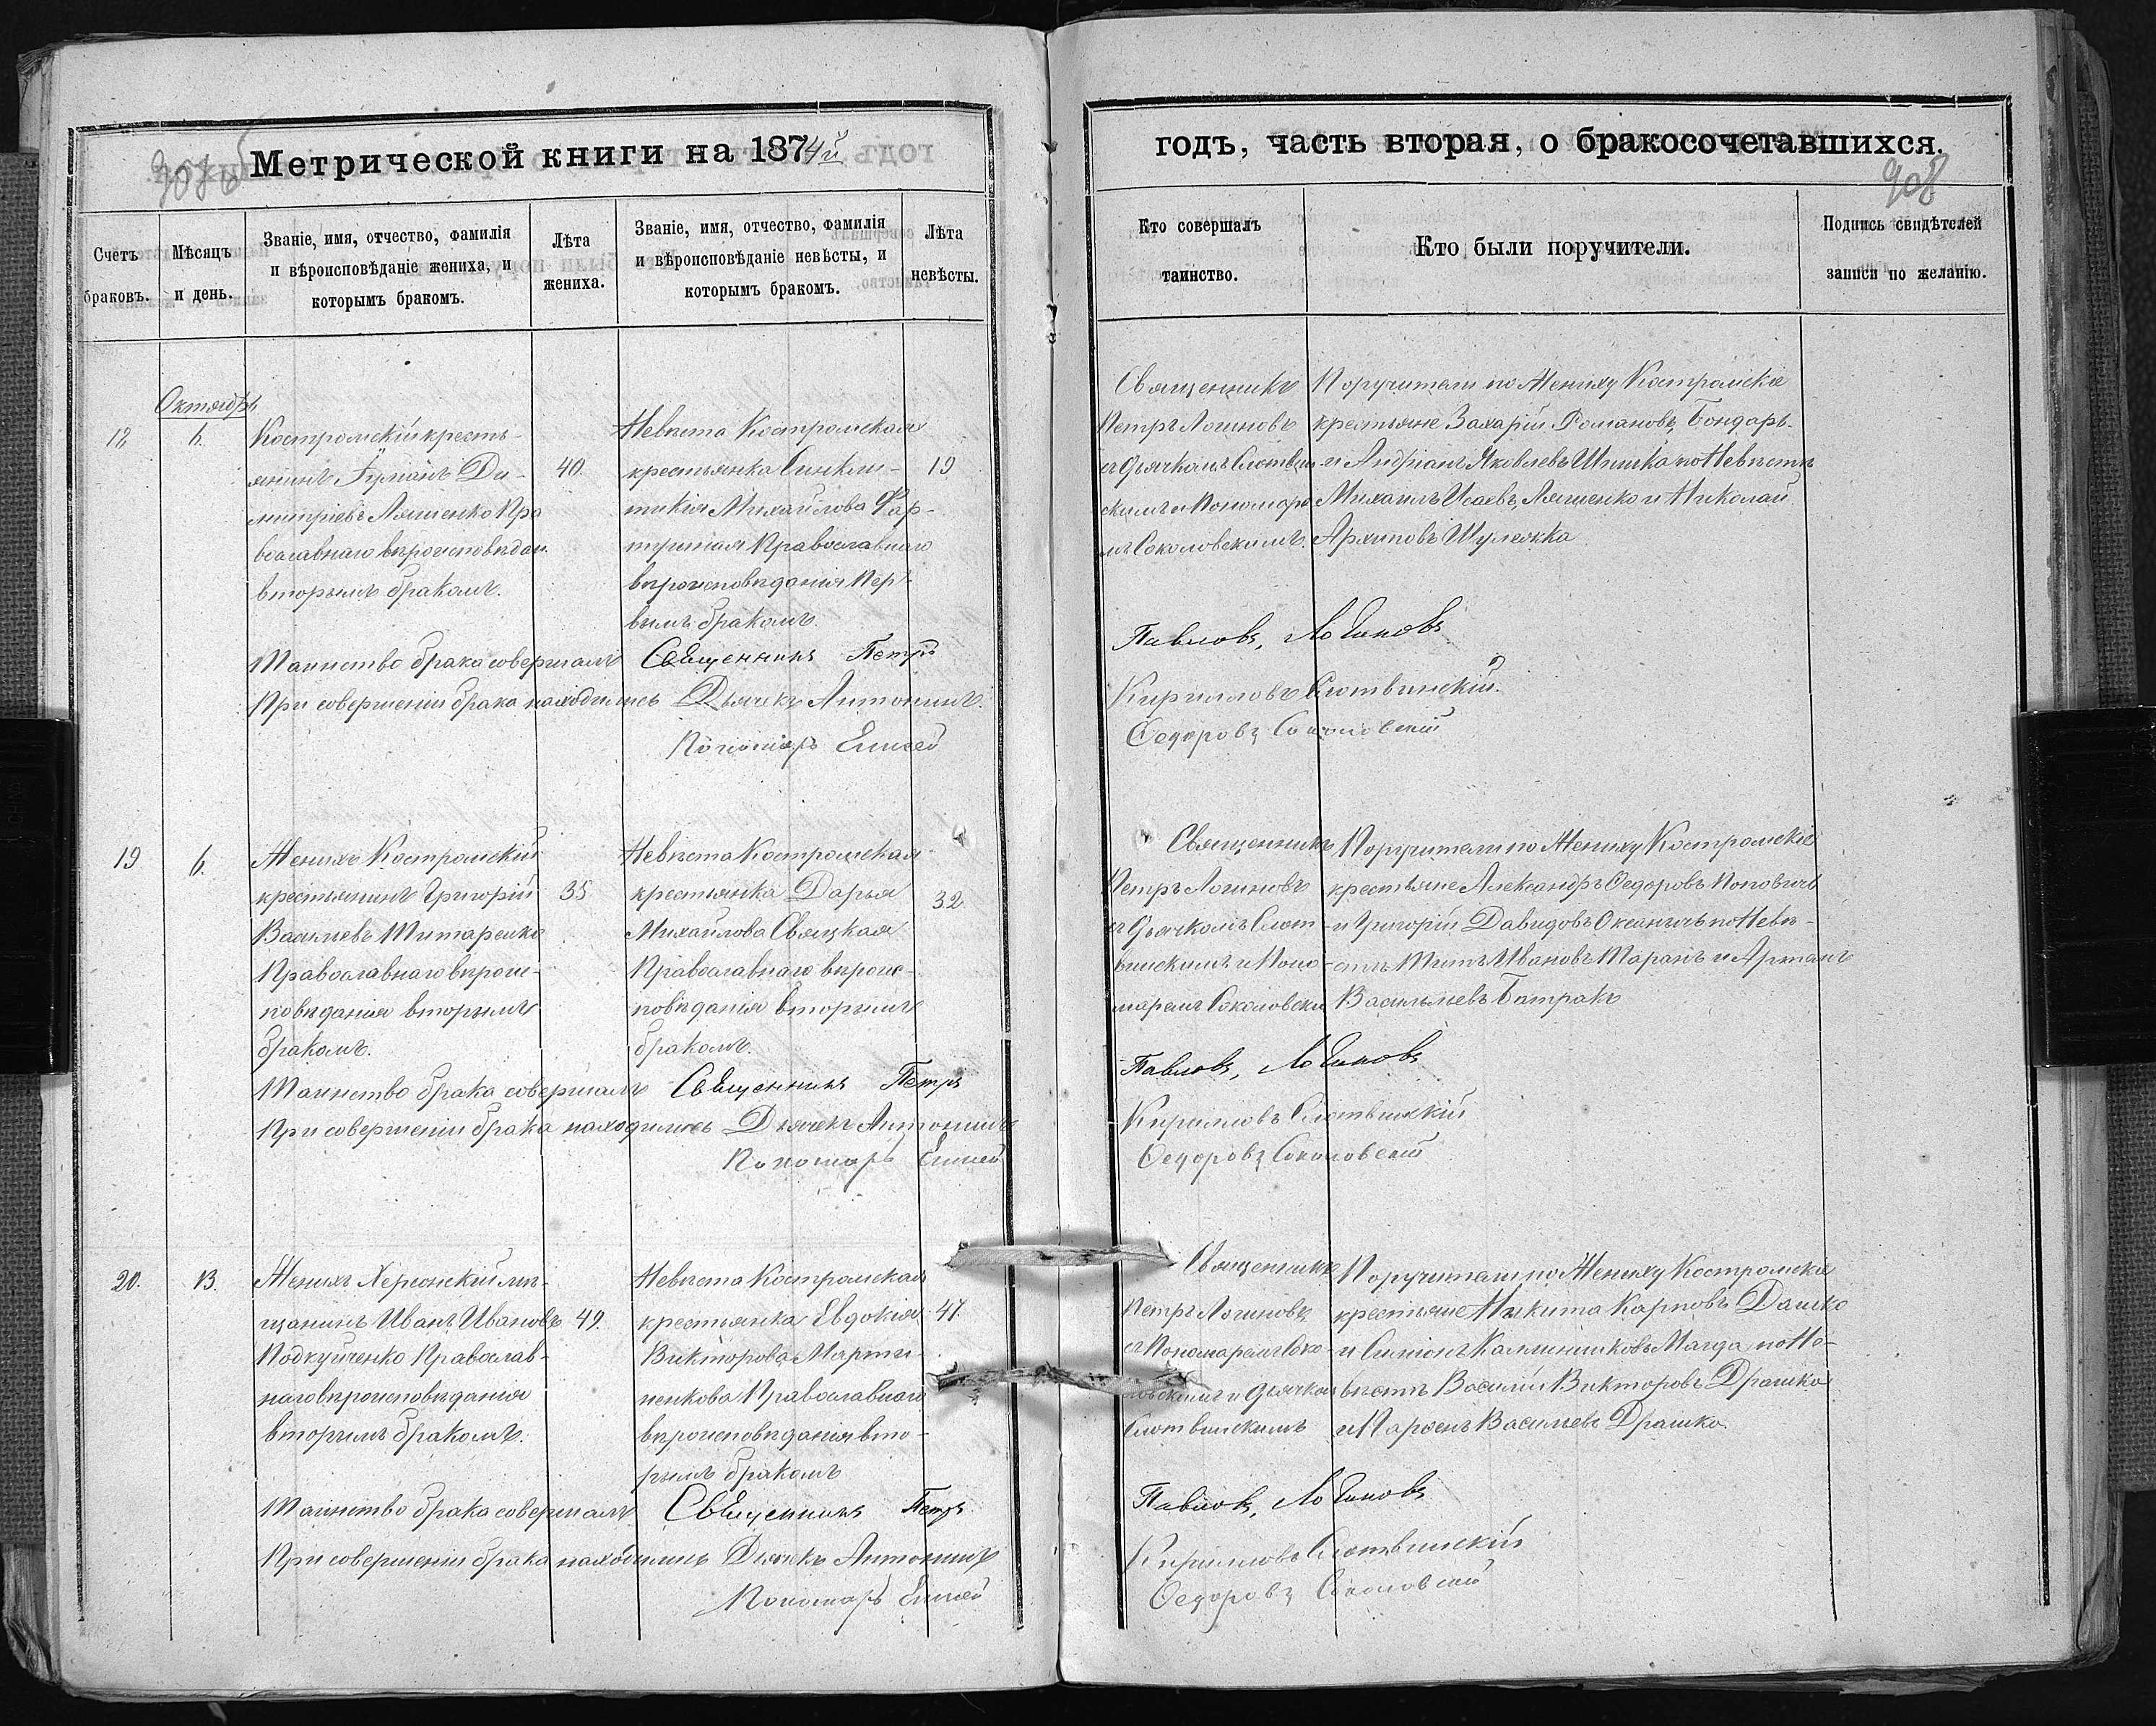 Метрической книги на 1874й
годъ, часть вторая, о бракосочетавшихся.
908
Счетъ
браковъ.
Мѣсяцъ
и день.
Званіе, имя, отчество, фамилія
и вѣроисповѣданіе жениха, и
которымъ бракомъ.
Лѣта
жениха.
Званіе, имя, отчество, фамилія
и вѣроисповѣданіе невѣсты, и
которымъ бракомъ.
Лѣта
невѣсты.
Кто совершалъ
таинство.
Кто были поручители.
Подпись свидѣтелей
записи по желанію.
Октябрь
18
6.
Костромскій кресть-
янинъ Ди-
митріевъ Ляшенко Пра
вославнаго вѣроисповѣдан.
вторымъ бракомъ.
40.
Невѣста Костромская
крестьянка Синкли-
тикія Михайлова
Православнаго
вѣроисповѣданія пер-
вымъ бракомъ.
19
Священникъ
Петръ Логиновъ
съ Дьячкомъ
и Пономаре
мъ Соколовскимъ.
Поручители по Жениху Костромскіе
крестьяне Захарій Романовъ Бондарь
и Андріанъ Яковлевъ Шишка по Невѣстѣ
Михаилъ Исаевъ Ляшенко и Николай
Архиповъ Шулежка
Таинство брака совершалъ Священникъ Петръ
Павловъ, Логиновъ
При совершеніи брака находились Дьячекъ Антонинъ
Кирилловъ Слотвинскій.
Пономарь Елисей
Ѳедоровъ Соколовскій
19
6.
Женихъ Костромскій
крестьянинъ Григорій
Васильевъ Титаренко
Православнаго вѣроис-
повѣданія вторымъ
бракомъ.
35
Невѣста Костромская
крестьянка Дарья
Михайлова Свяцкая
Православнаго вѣроис-
повѣданія вторымъ
бракомъ.
32
Священникъ
Петръ Логиновъ
съ Дьячкомъ Слот-
винскимъ и Поно-
маремъ Соколовски
Поручители по Жениху Костромскіе
крестьяне Александръ Ѳедоровъ Поповичъ
и Григорій Давидовъ по Невѣ-
стѣ Титъ Ивановъ Таранъ и Артамъ
Васильевъ Батракъ
Таинство брака совершалъ Священникъ Петръ
Павловъ, Логиновъ
При совершеніи брака находились Дьячекъ Антонинъ
Кирилловъ Слотвинскій
Пономарь Елисей
Ѳедоровъ Соколовскій
20.
13.
Женихъ Херсонскій мѣ-
щанинъ Иванъ Ивановъ
Подкуйченко Православ-
наго вѣроисповѣданія
вторымъ бракомъ.
49.
Невѣста Костромская
крестьянка Евдокія
Викторова Марти-
ненкова Православнаго
вѣроисповѣданія вто-
рымъ бракомъ
47.
Священникъ
Петръ Логиновъ
съ Пономаремъ Соко-
ловскимъ и Дьячком
Слотвинскимъ
Поручители по Жениху Костромскіе
крестьяне Никита Карповъ Дашко
и Симонъ Калинниковъ Магда по Не-
вѣстѣ Василій Викторовъ Драшко
и Парѳенъ Васильевъ Драшко.
Таинство брака совершалъ Священникъ Петръ
Павловъ, Логиновъ
При совершеніи брака находились Дьячекъ Антонинъ
Кирилловъ Слотвинскій
Пономарь Елисей
Ѳедоровъ Соколовскій